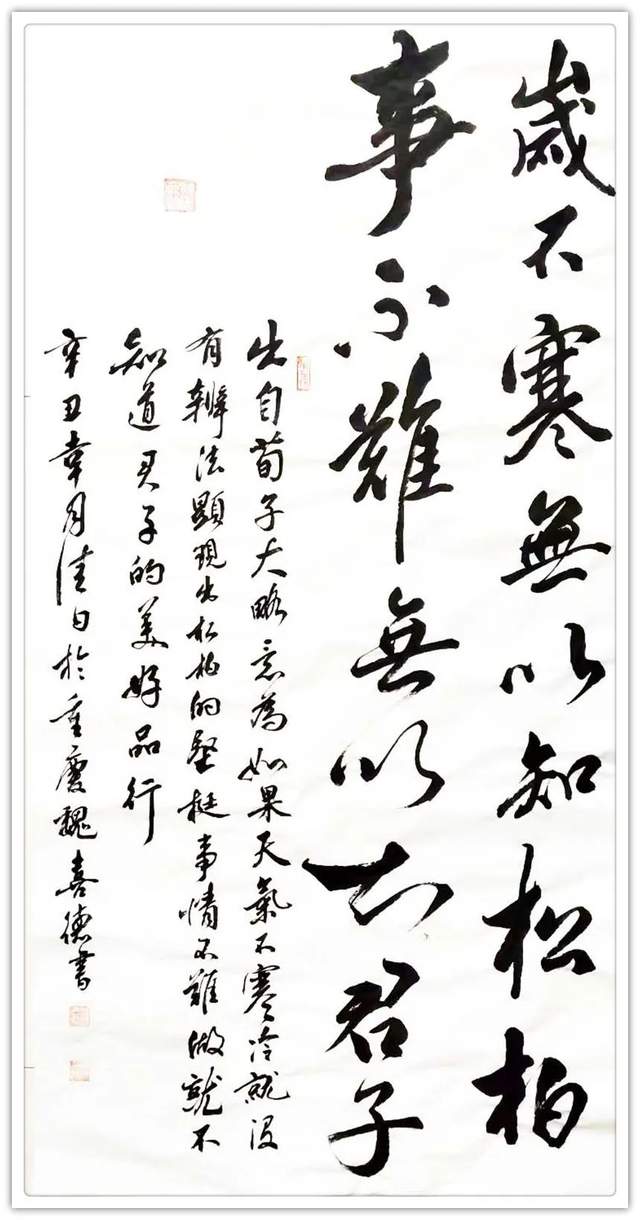 歲不寒無以知松柏
事不難無以知君子
出自荀子大略意為如果天氣不寒冷就沒
有辦法顯現出松柏的堅挺事情不難做就不
知道君子的美好品行
辛丑辜月佳句於重慶魏喜德書